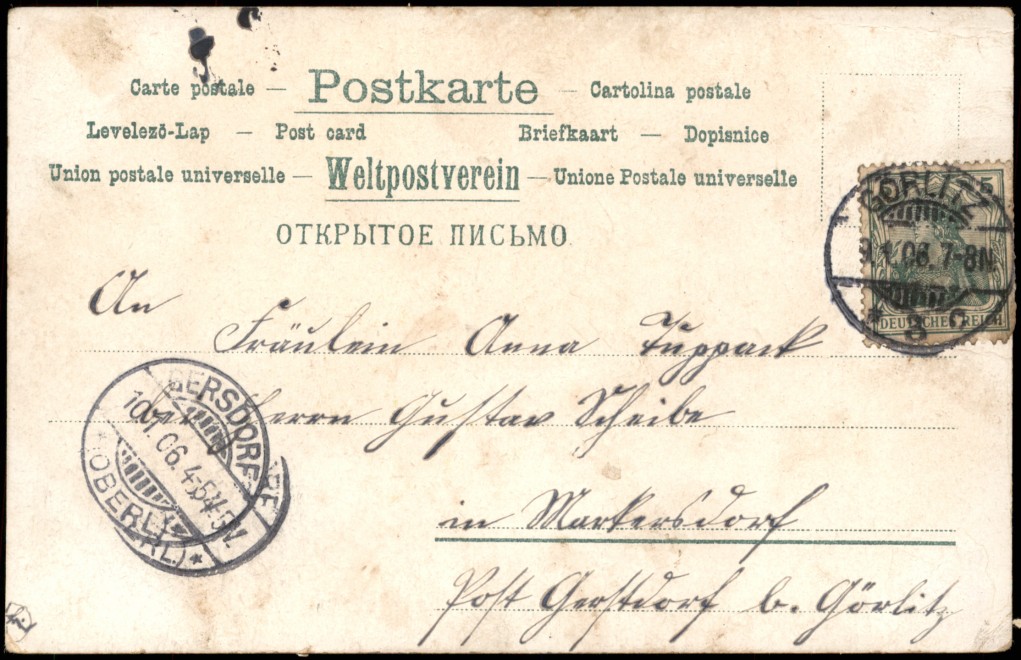 Carte postale — Postkarte — Cartolina postale
Levelező-Lap — Post card Briefkaart — Dopisnice
Union postale universelle — Weltpostverein — Unione Postale universelle
ОТКРЫТОЕ ПИСЬМО
5
GÖRLITZ
9.1.06. 7-8N.
* 3 C
DEUTSCHES REICH
An
Fräulein Anna Tuppack
bei Herrn Gustav Scheibe
GERSDORF
10.1.06. 4-5N
(OBERL.) *
in Markersdorf
Post Gerstdorf b. Görlitz